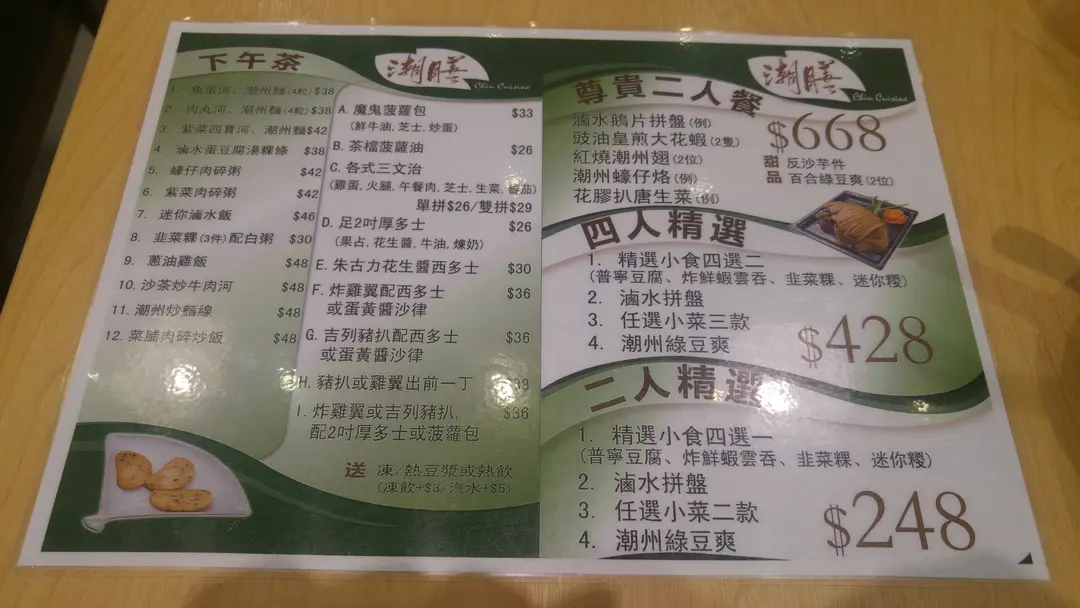 下午茶
潮膳
Chiu Cuisine
1. 魚蛋河、潮州麵(4粒)$38
2. 肉丸河、潮州麵(4粒)$38
3. 紫菜四寶河、潮州麵$42
4. 滷水蛋豆腐湯粿條 $38
5. 蠔仔肉碎粥 $42
6. 紫菜肉碎粥 $42
7. 迷你滷水飯 $46
8. 韭菜粿(3件)配白粥 $30
9. 蔥油雞飯 $48
10. 沙茶炒牛肉河 $48
11. 潮州炒麵線 $48
12. 菜脯肉碎炒飯 $48
A. 魔鬼菠蘿包 $33
(鮮牛油,芝士,炒蛋)
B. 茶檔菠蘿油 $26
C. 各式三文治
(雞蛋,火腿,午餐肉,芝士,生菜,番茄)
單拼$26/雙拼$29
D. 足2吋厚多士 $26
(果占,花生醬,牛油,煉奶)
E. 朱古力花生醬西多士 $30
F. 炸雞翼配西多士 $36
或蛋黃醬沙律
G. 吉列豬扒配西多士 $36
或蛋黃醬沙律
H. 豬扒或雞翼出前一丁
I. 炸雞翼或吉列豬扒, $36
配2吋厚多士或菠蘿包
送 凍/熱豆漿或熱飲
(凍飲+$3/汽水+$5)
潮膳
Chiu Cuisine
尊貴二人餐
滷水鵝片拼盤(例)
豉油皇煎大花蝦(2隻)
紅燒潮州翅(2位)
潮州蠔仔烙(例)
花膠扒唐生菜(例)
$668
甜品 反沙芋件
百合綠豆爽(2位)
四人精選
1. 精選小食四選二
(普寧豆腐、炸鮮蝦雲吞、韭菜粿、迷你糉)
2. 滷水拼盤
3. 任選小菜三款
4. 潮州綠豆爽
$428
二人精選
1. 精選小食四選一
(普寧豆腐、炸鮮蝦雲吞、韭菜粿、迷你糉)
2. 滷水拼盤
3. 任選小菜二款
4. 潮州綠豆爽
$248